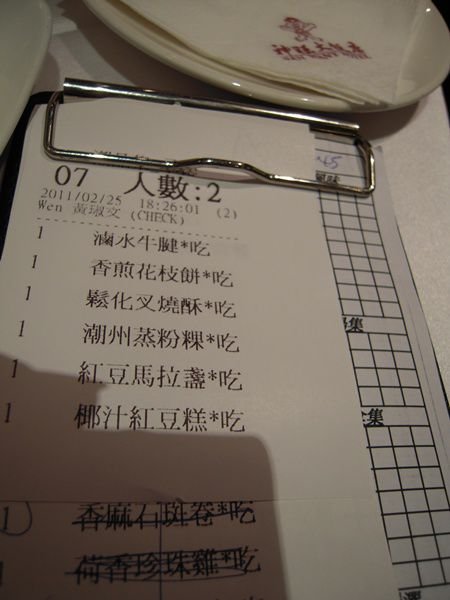 07 人數:2
2011/02/25 18:26:01 (2)
Wen 黃淑文 (CHECK)
1 滷水牛腱*吃
1 香煎花枝餅*吃
1 鬆化叉燒酥*吃
1 潮州蒸粉粿*吃
1 紅豆馬拉盞*吃
1 椰汁紅豆糕*吃
1 香麻石斑卷*吃
1 荷香珍珠雞*吃
45
集
集